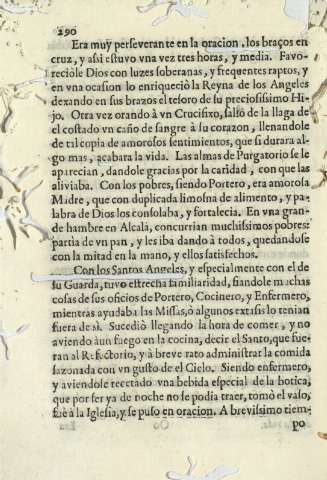 290
Era muy perseverante en la oracion, los braços en
cruz, y assi estuvo vna vez tres horas, y media. Favo-
reciòle Dios con luzes soberanas, y frequentes raptos, y
en vna ocasion lo enriqueciò la Reyna de los Angeles
dexando en sus brazos el tesoro de su preciosissimo Hi-
jo. Otra vez orando à vn Crucifixo, saltó de la llaga de
el costado vn caño de sangre à su corazon, llenandole
de tal copia de amorosos sentimientos, que si durara al-
go mas, acabara la vida. Las almas de Purgatorio se le
aparecian, dandole gracias por la caridad, con que las
aliviaba. Con los pobres, siendo Portero, era amorosa
Madre, que con duplicada limosna de alimento, y pa-
labra de Dios los consolaba, y fortalecia. En vna gran-
de hambre en Alcalà, concurrian muchissimos pobres:
partia de vn pan, y les iba dando à todos, quedandose
con la mitad en la mano, y ellos satisfechos.
Con los Santos Angeles, y especialmente con el de
su Guarda, tuvo estrecha familiaridad, fiandole muchas
cosas de sus oficios de Portero, Cocinero, y Enfermero,
mientras ayudaba las Missas, ò algunos extasis lo tenian
fuera de sì. Sucediò llegando la hora de comer, y no
aviendo aùn fuego en la cocina, decir el Santo, que fue-
ran al Refectorio, y à breve rato administrar la comida
sazonada con vn gusto de el Cielo. Siendo enfermero,
y aviendole recetado vna bebida especial de la botica,
que por ser ya de noche no se podia traer, tomò el vaso,
fuè à la Iglesia, y se puso en oracion. A brevissimo tiem-
po